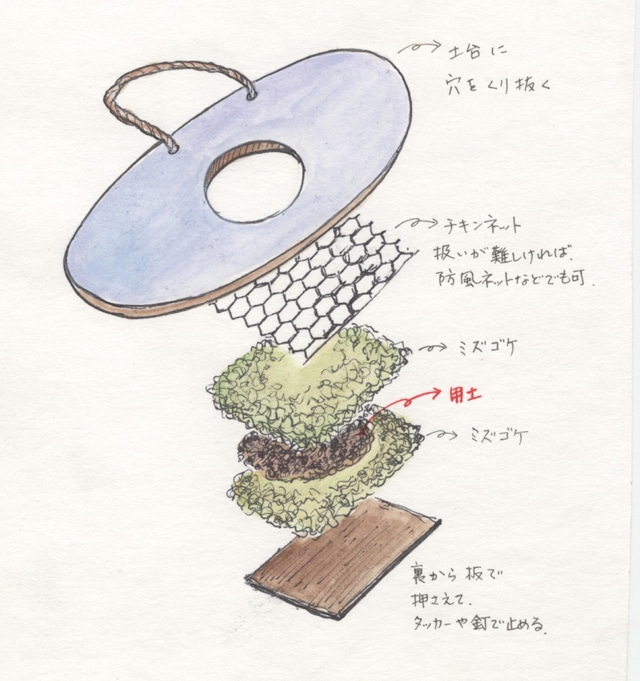 土台に
穴をくり抜く
チキンネット
扱いが難しければ.
防風ネットなどでも可.
ミズゴケ
用土
ミズゴケ
裏から板で
押さえて.
タッカーや釘で止める.